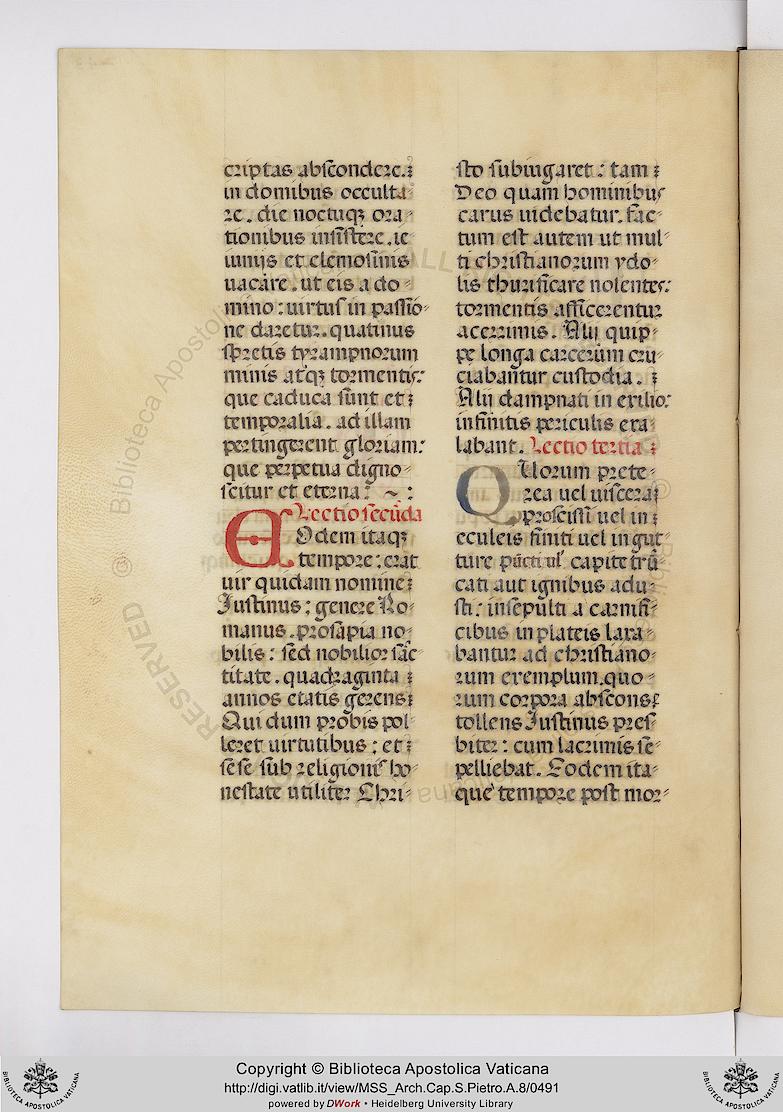 criptas abscondere.:
in domibus occulta
re. die noctuqꝫ ora-
tionibus insistere. ie
iunijs et elemosinis
uacare. ut eis a do-
mino: uirtus in passio-
ne daretur. quatinus
spretis tyrampnorum
minis atqꝫ tormentis:
que caduca sunt et:
temporalia. ad illam
pertingerent gloriam:
que perpetua digno-
scitur et eterna: ~ :
Lectio secūda
Eodem itaqꝫ
tempore: erat
uir quidam nomine:
Iustinus: genere Ro-
manus. prosapia no-
bilis: sed nobilior sāc-
titate. quadraginta :
annos etatis gerens:
Qui dum probis pol-
leret uirtutibus: et:
se se sub religionis ho-
nestate utiliter Chri-
sto subiugaret: tam :
Deo quam hominibus
carus uidebatur. fac-
tum est autem ut mul-
ti christianorum ydo-
lis thurificare nolentes:
tormentis afficerentur
acerrimis. Alij quip-
pe longa carcerum cru-
ciabantur custodia. :
Alij dampnati in exilio:
infinitis periculis exa-
labant. Lectio tertia :
QUorum prete-
rea uel uiscera
proscissi uel in:
eculeis finiti uel in gut-
ture pūcti ul' capite trū-
cati aut ignibus adu-
sti: insepulti a carnifi-
cibus in plateis laxa-
bantur ad christiano-
rum exemplum. quo-
rum corpora absconse
tollens Iustinus pres
biter: cum lacrimis se-
pelliebat. Eodem ita-
que tempore post mor-
RESERVED © Biblioteca Apostolica Vaticana
Copyright © Biblioteca Apostolica Vaticana
http://digi.vatlib.it/view/MSS_Arch.Cap.S.Pietro.A.8/0491
powered by DWork • Heidelberg University Library
BIBLIOTECA APOSTOLICA VATICANA
BIBLIOTECA APOSTOLICA VATICANA